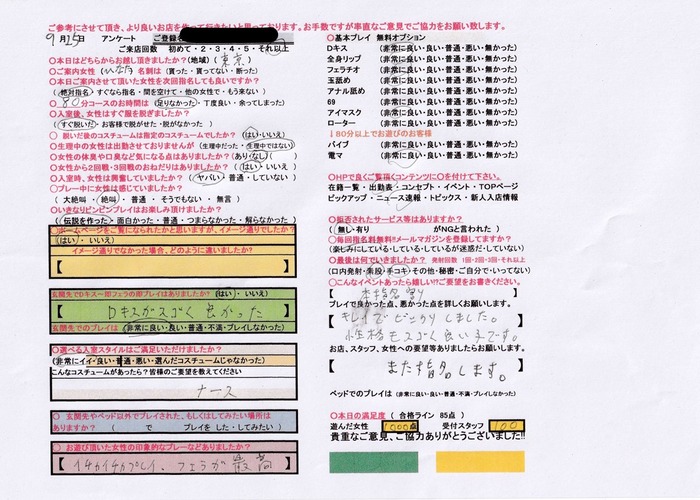 ご参考にさせて頂き、より良いお店を作って行きたいと思っております。お手数ですが率直なご意見でご協力をお願い致します。
9月25日 アンケート ご登録名
ご来店回数 初めて・2・3・4・5・それ以上
〇本日はどちらからお越し頂きましたか?(地域)(東京)
〇ご案内女性( )名刺は(貰った・貰ってない・断った)
〇本日ご案内させて頂いた女性を次回指名しても良いですか?
(絶対指名)すぐなら指名・間を空けて・他の女性で・もう来ない)
〇80分コースのお時間は(足りなかった・丁度良い・余ってしまった)
〇入室後、女性はすぐ服を脱ぎましたか?
(すぐ脱いだ・お客様で脱がせた・脱がなかった)
〇脱いだ後のコスチュームは指定のコスチュームでしたか?(はい・いいえ)
〇生理中の女性は出勤させておりませんが(生理中だった・生理中ではない)
〇女性の体臭や口臭など気になる点はありましたか?(あり・なし)( )
〇女性から2回戦・3回戦のおねだりはありましたか?(はい・いいえ)
〇入室時、女性は興奮していましたか?(ヤバい・普通・していない)
〇プレー中に女性は感じていましたか?
(大絶叫・絶叫・普通・そうでもない・無言)
〇いきなりビンビンプレイはお楽しみ頂けましたか?
(伝説を作った・面白かった・普通・つまらなかった・解らなかった)
〇ホームページをご覧になられたかと思いますが、イメージ通りでしたか?
(はい・いいえ)
イメージ通りでなかった場合、どのように違いましたか?
【 】
玄関先でDキス〜即フェラの即プレイはありましたか?(はい・いいえ)
【 Dキスがスゴく良かった 】
玄関先でのプレイは(非常に良い・良い・普通・不満・プレイしなかった)
〇選べる入室スタイルはご満足いただけましたか?
(非常にイイ・良い・普通・悪い・選んだコスチュームじゃなかった)
こんなコスチュームがあったら?皆様のご要望を教えてください
ナース
〇 玄関先やベッド以外でプレイされた、もしくはしてみたい場所は
ありますか?( で プレイを した・してみたい)
〇お遊び頂いた女性の印象的なプレーなどありましたか?
【 イチャイチャプレイ、フェラが最高 】
〇基本プレイ 無料オプション
Dキス (非常に良い・良い・普通・悪い・無かった)
全身リップ (非常に良い・良い・普通・悪い・無かった)
フェラチオ (非常に良い・良い・普通・悪い・無かった)
玉舐め (非常に良い・良い・普通・悪い・無かった)
アナル舐め (非常に良い・良い・普通・悪い・無かった)
69 (非常に良い・良い・普通・悪い・無かった)
アイマスク (非常に良い・良い・普通・悪い・無かった)
ローター (非常に良い・良い・普通・悪い・無かった)
↓80分以上でお遊びのお客様
バイブ (非常に良い・良い・普通・悪い・無かった)
電マ (非常に良い・良い・普通・悪い・無かった)
〇HPで良くご覧頂くコンテンツに〇を付けて下さい。
在籍一覧・出勤表・コンセプト・イベント・TOPページ
ピックアップ・ニュース速報・トピックス・新人入店情報
〇拒否されたサービス等はありますか?
(無し・有り がNGと言われた)
〇毎回指名料無料!!メールマガジンを登録してますか?
(楽しみにしている・している・しているが迷惑だ・していない)
〇最後は何でいきましたか? 発射回数 1回・2回・3回・それ以上
(口内発射・素股・手コキ・その他・秘密・ご自分で・いってない)
〇こんなイベントあったら嬉しい!!ご要望をお書きください。
【 本指名割 】
プレイで良かった点、悪かった点を詳しくお願いします。
キレイでビックリしました。
性格もスゴく良い子です。
お店、スタッフ、女性への要望等ありましたらお願いします。
【 また指名します。 】
ベッドでのプレイは(非常に良い・良い・普通・不満・プレイしなかった)
〇本日の満足度 ( 合格ライン 85点 )
遊んだ女性 1000点 受付スタッフ 100
貴重なご意見、ご協力ありがとうございました!!